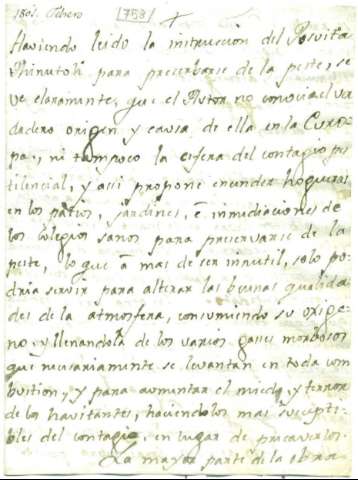 1801. Febrero 758
Haviendo leido la instruccion del Jesuita
para precerbarse de la peste, se
ve claramente, que el Autor no conocia el ver
dadero origen y causa de ella en la Euro
pa, ni tampoco la esfera del contagio pes
tilencial, y assi propone encender hogueras
en los patios, jardines, è inmediaciones de
los colegios sanos para preservarse de la
peste, lo que à mas de ser innutil, solo po
dria servir para alterar las buenas qualida
des de la atmosfera, consumiendo su oxige
no, y llenandola de los varios gases morbosos
que necesariamente se levantan en toda com
bustion, y para aumentar el miedo, y terror
de los havitantes, haciendolos mas suscepti
bles del contagio, en lugar de precaverlos.
La mayor parte de la